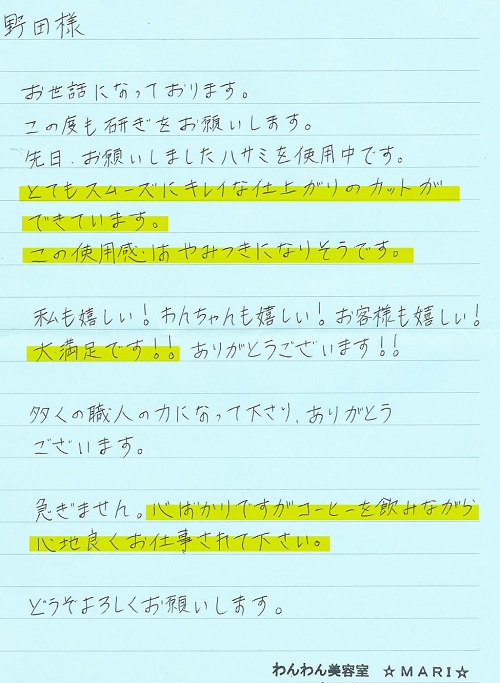 野田様
お世話になっております。
この度も研ぎをお願いします。
先日、お願いしましたハサミを使用中です。
とてもスムーズにキレイな仕上がりのカットが
できています。
この使用感はやみつきになりそうです。
私も嬉しい!わんちゃんも嬉しい!お客様も嬉しい!
大満足です!!ありがとうございます!!
多くの職人の力になって下さり、ありがとう
ございます。
急ぎません。心ばかりですがコーヒーを飲みながら
心地良くお仕事されて下さい。
どうぞよろしくお願いします。
わんわん美容室 ☆MARI☆